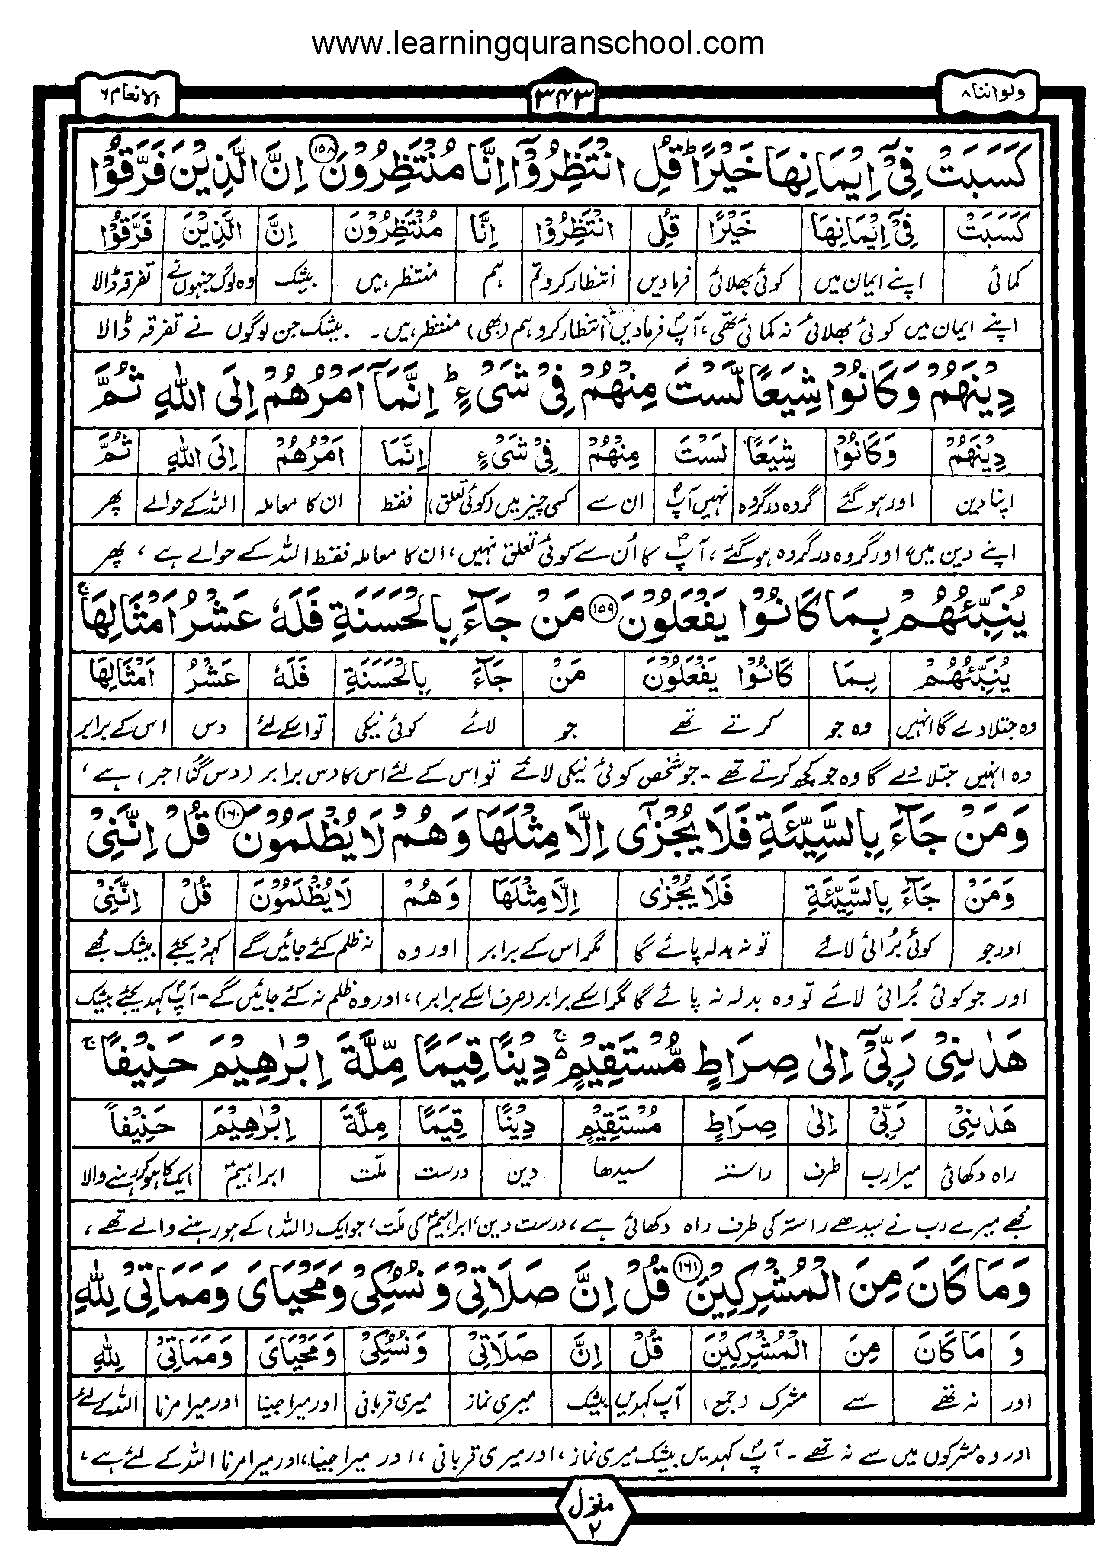 www.learningquranschool.com
ولواننا۸
۳۴۳
الانعام۶
كَسَبَتْ فِيْٓ اِيْمَانِهَا خَيْرًا ۭ قُلِ انْتَظِرُوْٓا اِنَّا مُنْتَظِرُوْنَ ۱۵۸ اِنَّ الَّذِيْنَ فَرَّقُوْا
كَسَبَتْ فِيْٓ اِيْمَانِهَا خَيْرًا قُلِ انْتَظِرُوْٓا اِنَّا مُنْتَظِرُوْنَ اِنَّ الَّذِيْنَ فَرَّقُوْا
کمائی اپنے ایمان میں کوئی بھلائی فرمادیں انتظار کرو تم ہم منتظر ہیں بیشک وہ لوگ جنہوں نے تفرقہ ڈالا
اپنے ایمان میں کوئی بھلائی نہ کمائی تھی، آپؐ فرمادیں انتظار کرو ہم (بھی) منتظر ہیں۔ بیشک جن لوگوں نے تفرقہ ڈالا
دِيْنَهُمْ وَكَانُوْا شِيَعًا لَّسْتَ مِنْهُمْ فِيْ شَيْءٍ ۭ اِنَّمَآ اَمْرُهُمْ اِلَى اللّٰهِ ثُمَّ
دِيْنَهُمْ وَكَانُوْا شِيَعًا لَسْتَ مِنْهُمْ فِيْ شَيْءٍ اِنَّمَا اَمْرُهُمْ اِلَى اللّٰهِ ثُمَّ
اپنا دین اور ہوگئے گروہ در گروہ نہیں آپؐ ان سے کسی چیز میں (کوئی تعلق) فقط ان کا معاملہ اللہ کے حوالے پھر
اپنے دین میں، اور گروہ در گروہ ہوگئے، آپؐ کا اُن سے کوئی تعلق نہیں، ان کا معاملہ فقط اللہ کے حوالے ہے، پھر
يُنَبِّئُهُمْ بِمَا كَانُوْا يَفْعَلُوْنَ ۱۵۹ مَنْ جَاۗءَ بِالْحَسَنَةِ فَلَهٗ عَشْرُ اَمْثَالِهَا ۚ
يُنَبِّئُهُمْ بِمَا كَانُوْا يَفْعَلُوْنَ مَنْ جَاۗءَ بِالْحَسَنَةِ فَلَهٗ عَشْرُ اَمْثَالِهَا
وہ جتلا دے گا انہیں وہ جو کرتے تھے جو لائے کوئی نیکی تو اسکے لئے دس اس کے برابر
وہ انہیں جتلا دے گا وہ جو کچھ کرتے تھے۔ جو شخص کوئی نیکی لائے تو اس کے لئے اس کا دس برابر (دس گنا اجر) ہے،
وَمَنْ جَاۗءَ بِالسَّيِّئَةِ فَلَا يُجْزٰٓى اِلَّا مِثْلَهَا وَهُمْ لَا يُظْلَمُوْنَ ۱۶۰ قُلْ اِنَّنِيْ
وَمَنْ جَاۗءَ بِالسَّيِّئَةِ فَلَا يُجْزٰى اِلَّا مِثْلَهَا وَهُمْ لَا يُظْلَمُوْنَ قُلْ اِنَّنِيْ
اور جو کوئی بُرائی لائے تو نہ بدلہ پائے گا مگر اس کے برابر اور وہ نہ ظلم کئے جائیں گے کہہ دیجئے بیشک مجھے
اور جو کوئی بُرائی لائے تو وہ بدلہ نہ پائے گا مگر اسکے برابر (صرف اسکے برابر)، اور وہ ظلم نہ کئے جائیں گے۔ آپؐ کہہ دیجئے بیشک
هَدٰىنِيْ رَبِّيْٓ اِلٰى صِرَاطٍ مُّسْتَقِيْمٍ ۚ دِيْنًا قِيَمًا مِّلَّةَ اِبْرٰهِيْمَ حَنِيْفًا ۚ
هَدٰىنِيْ رَبِّيْٓ اِلٰى صِرَاطٍ مُسْتَقِيْمٍ دِيْنًا قِيَمًا مِلَّةَ اِبْرٰهِيْمَ حَنِيْفًا
راہ دکھائی میرا رب طرف راستہ سیدھا دین درست ملّت ابراہیمؑ ایک کا ہوکر رہنے والا
مجھے میرے رب نے سیدھے راستہ کی طرف راہ دکھائی ہے، درست دین، ابراہیمؑ کی ملّت، جو ایک (اللہ) کے ہو رہنے والے تھے،
وَمَا كَانَ مِنَ الْمُشْرِكِيْنَ ۱۶۱ قُلْ اِنَّ صَلَاتِيْ وَنُسُكِيْ وَمَحْيَايَ وَمَمَاتِيْ لِلّٰهِ
وَ مَا كَانَ مِنَ الْمُشْرِكِيْنَ قُلْ اِنَّ صَلَاتِيْ وَنُسُكِيْ وَمَحْيَايَ وَمَمَاتِيْ لِلّٰهِ
اور نہ تھے سے مشرک (جمع) آپ کہہ دیں بیشک میری نماز میری قربانی اور میرا جینا اور میرا مرنا اللہ کے لئے
اور وہ مشرکوں میں سے نہ تھے۔ آپؐ کہہ دیں بیشک میری نماز، اور میری قربانی، اور میرا جینا، اور میرا مرنا اللہ کے لئے ہے،
منزل
۲